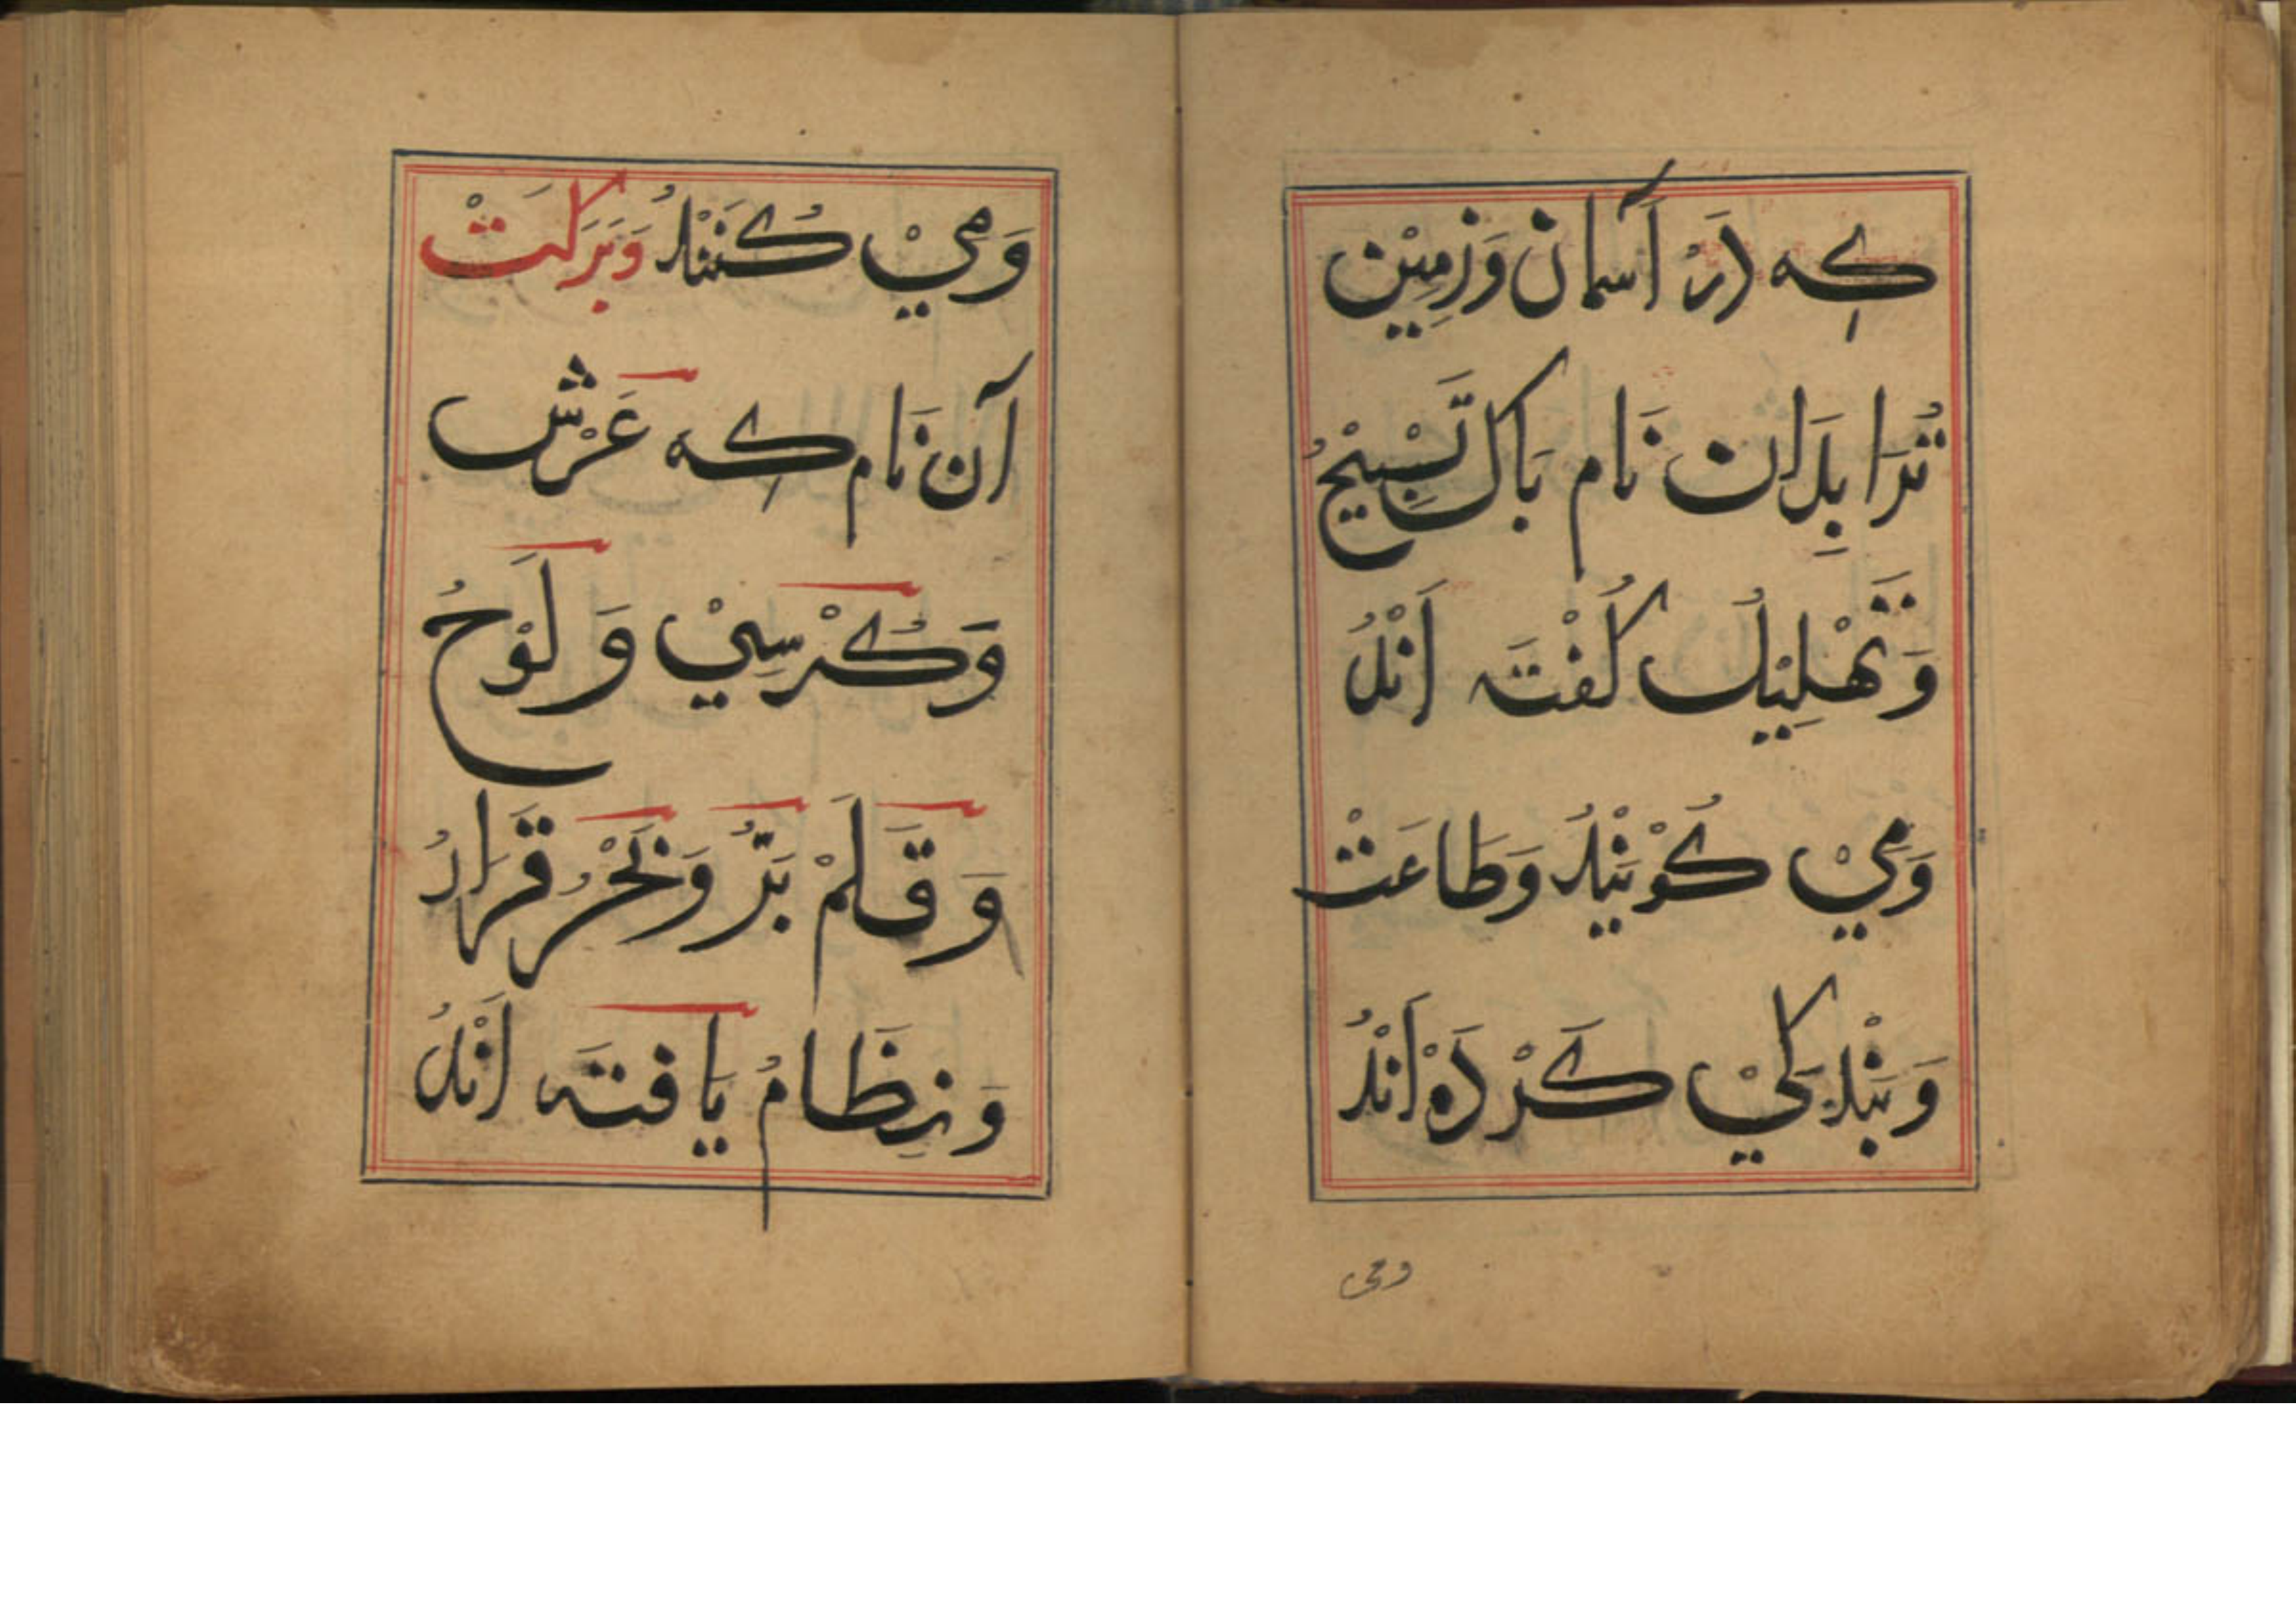 كِه دَرْ آسمان وَزمِيْن
تُرَا بِدَان نَام بَاك تَسْبِيْحُ
وَتَهْلِيْلُ كُفْتَه اَنْدُ
وَمِيْ كُوْيَنْدُ وَطَاعَتْ
وَبَنْدَكِيْ كَرْدَهْ اَنْدُ
ومی
وَمِيْ كُنَنْدُ وَبَرَكَتْ
آن نَام كِه عَرْش
وَكُرْسِيْ وَ لَوْحُ
وَ قَلَمْ بَرُّ وَبَحْرُ قَرَارُ
وَنِظَامُ يَافتَه اَنْدُ